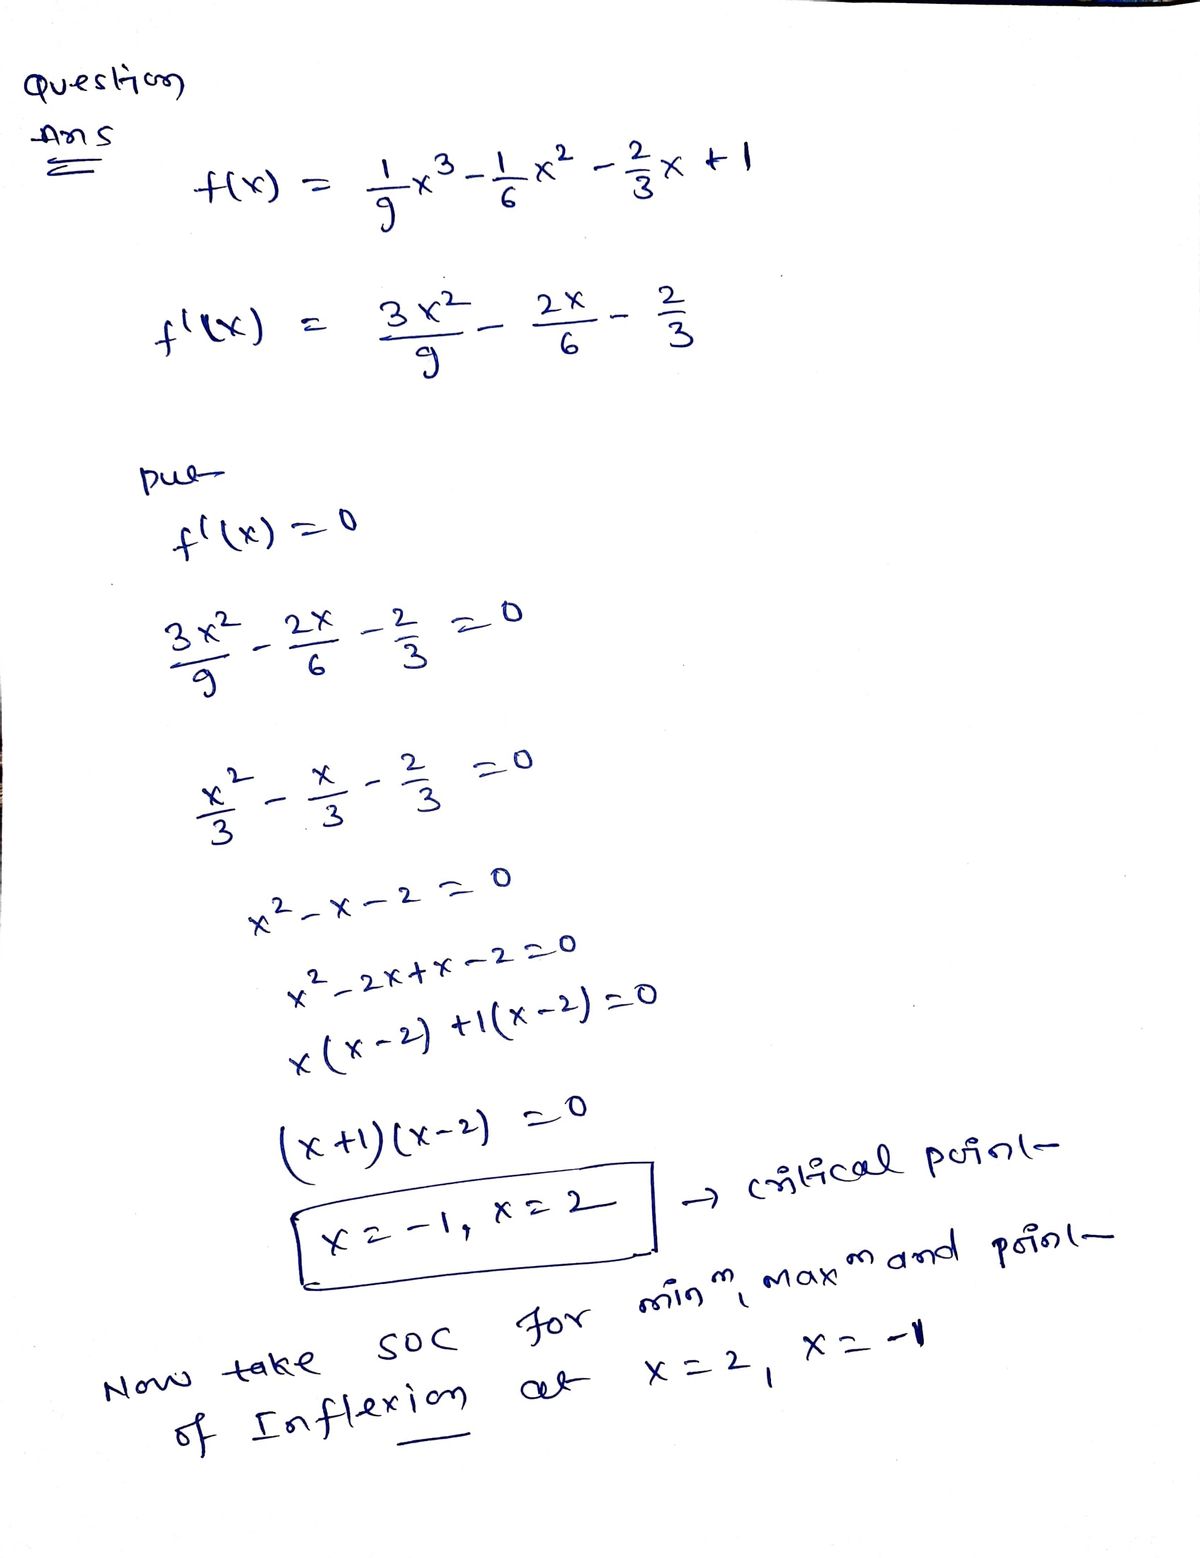 Question
Ans
f(x) = 1/9 x³ - 1/6 x² - 2/3 x + 1
f'(x) = 3x²/9 - 2x/6 - 2/3
put
f'(x) = 0
3x²/9 - 2x/6 - 2/3 = 0
x²/3 - x/3 - 2/3 = 0
x² - x - 2 = 0
x² - 2x + x - 2 = 0
x(x-2) + 1(x-2) = 0
(x+1)(x-2) = 0
x = -1, x = 2 → critical point
Now take SOC for minᵐ, maxᵐ and point
of Inflexion at x = 2, x = -1